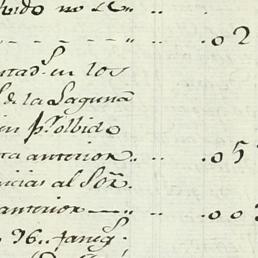 vido no
.. .. .02
ntad.ˢ en los
s de la Laguna
in p.ʳ olbido
ta anterior .. .. .05
ncias al Sōr.
anterior — .. .. .00
96.. faneg.ˢ